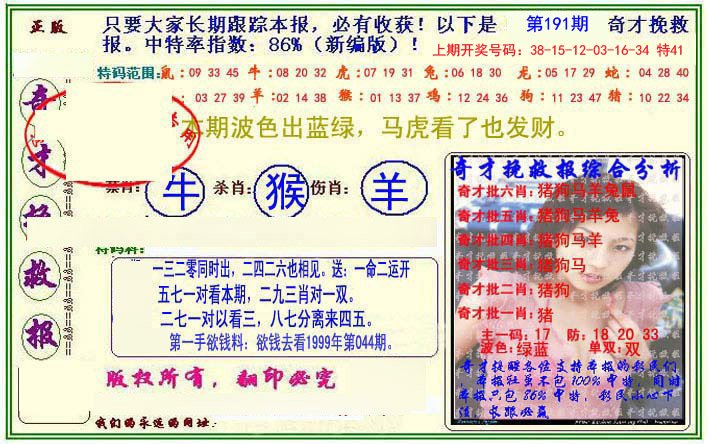 正版
只要大家长期跟踪本报，必有收获！以下是 第191期 奇才挽救
报。中特率指数：86%（新编版）！
上期开奖号码：38-15-12-03-16-34 特41
特码范围：鼠：09 33 45 牛：08 20 32 虎：07 19 31 兔：06 18 30 龙：05 17 29 蛇：04 28 40
：03 27 39 羊：02 14 38 猴：01 13 37 鸡：12 24 36 狗：11 23 47 猪：10 22 34
本期波色出蓝绿，马虎看了也发财。
奇才挽救报
禁肖：牛 杀肖：猴 伤肖：羊
特码料：
一三二零同时出，二四二六也相见。送：一命二运开
五七一对看本期，二九三肖对一双。
二七一对以看三，八七分离来四五。
第一手欲钱料：欲钱去看1999年第044期。
版权所有，翻印必究
我们的永远的网址：
奇才挽救报综合分析
奇才批六肖：猪狗马羊兔鼠
奇才批五肖：猪狗马羊兔
奇才批四肖：猪狗马羊
奇才批三肖：猪狗马
奇才批二肖：猪狗
奇才批一肖：猪
主一码：17 防：18 20 33
波色：绿蓝 单双：双
奇才提醒各位支持本报的彩民们
，本报社虽不包100%中特，同时
本报只包86%中特，彩民小心下
注，长跟必赢